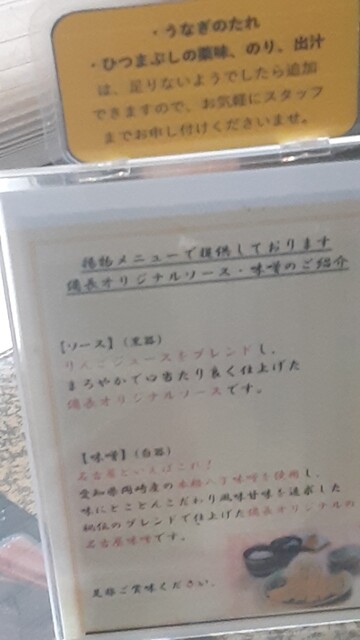 ・うなぎのたれ
・ひつまぶしの薬味、のり、出汁
は、足りないようでしたら追加
できますので、お気軽にスタッフ
までお申し付けくださいませ。
揚物メニューで提供しております
備長オリジナルソース・味噌のご紹介
【ソース】(黒器)
りんごジュースをブレンドし、
まろやかで口当たり良く仕上げた
備長オリジナルソースです。
【味噌】(白器)
名古屋といえばこれ！
愛知県岡崎産の本格八丁味噌を使用し、
味にとことんこだわり風味甘味を追求した
秘伝のブレンドで仕上げた備長オリジナルの
名古屋味噌です。
是非ご賞味ください。